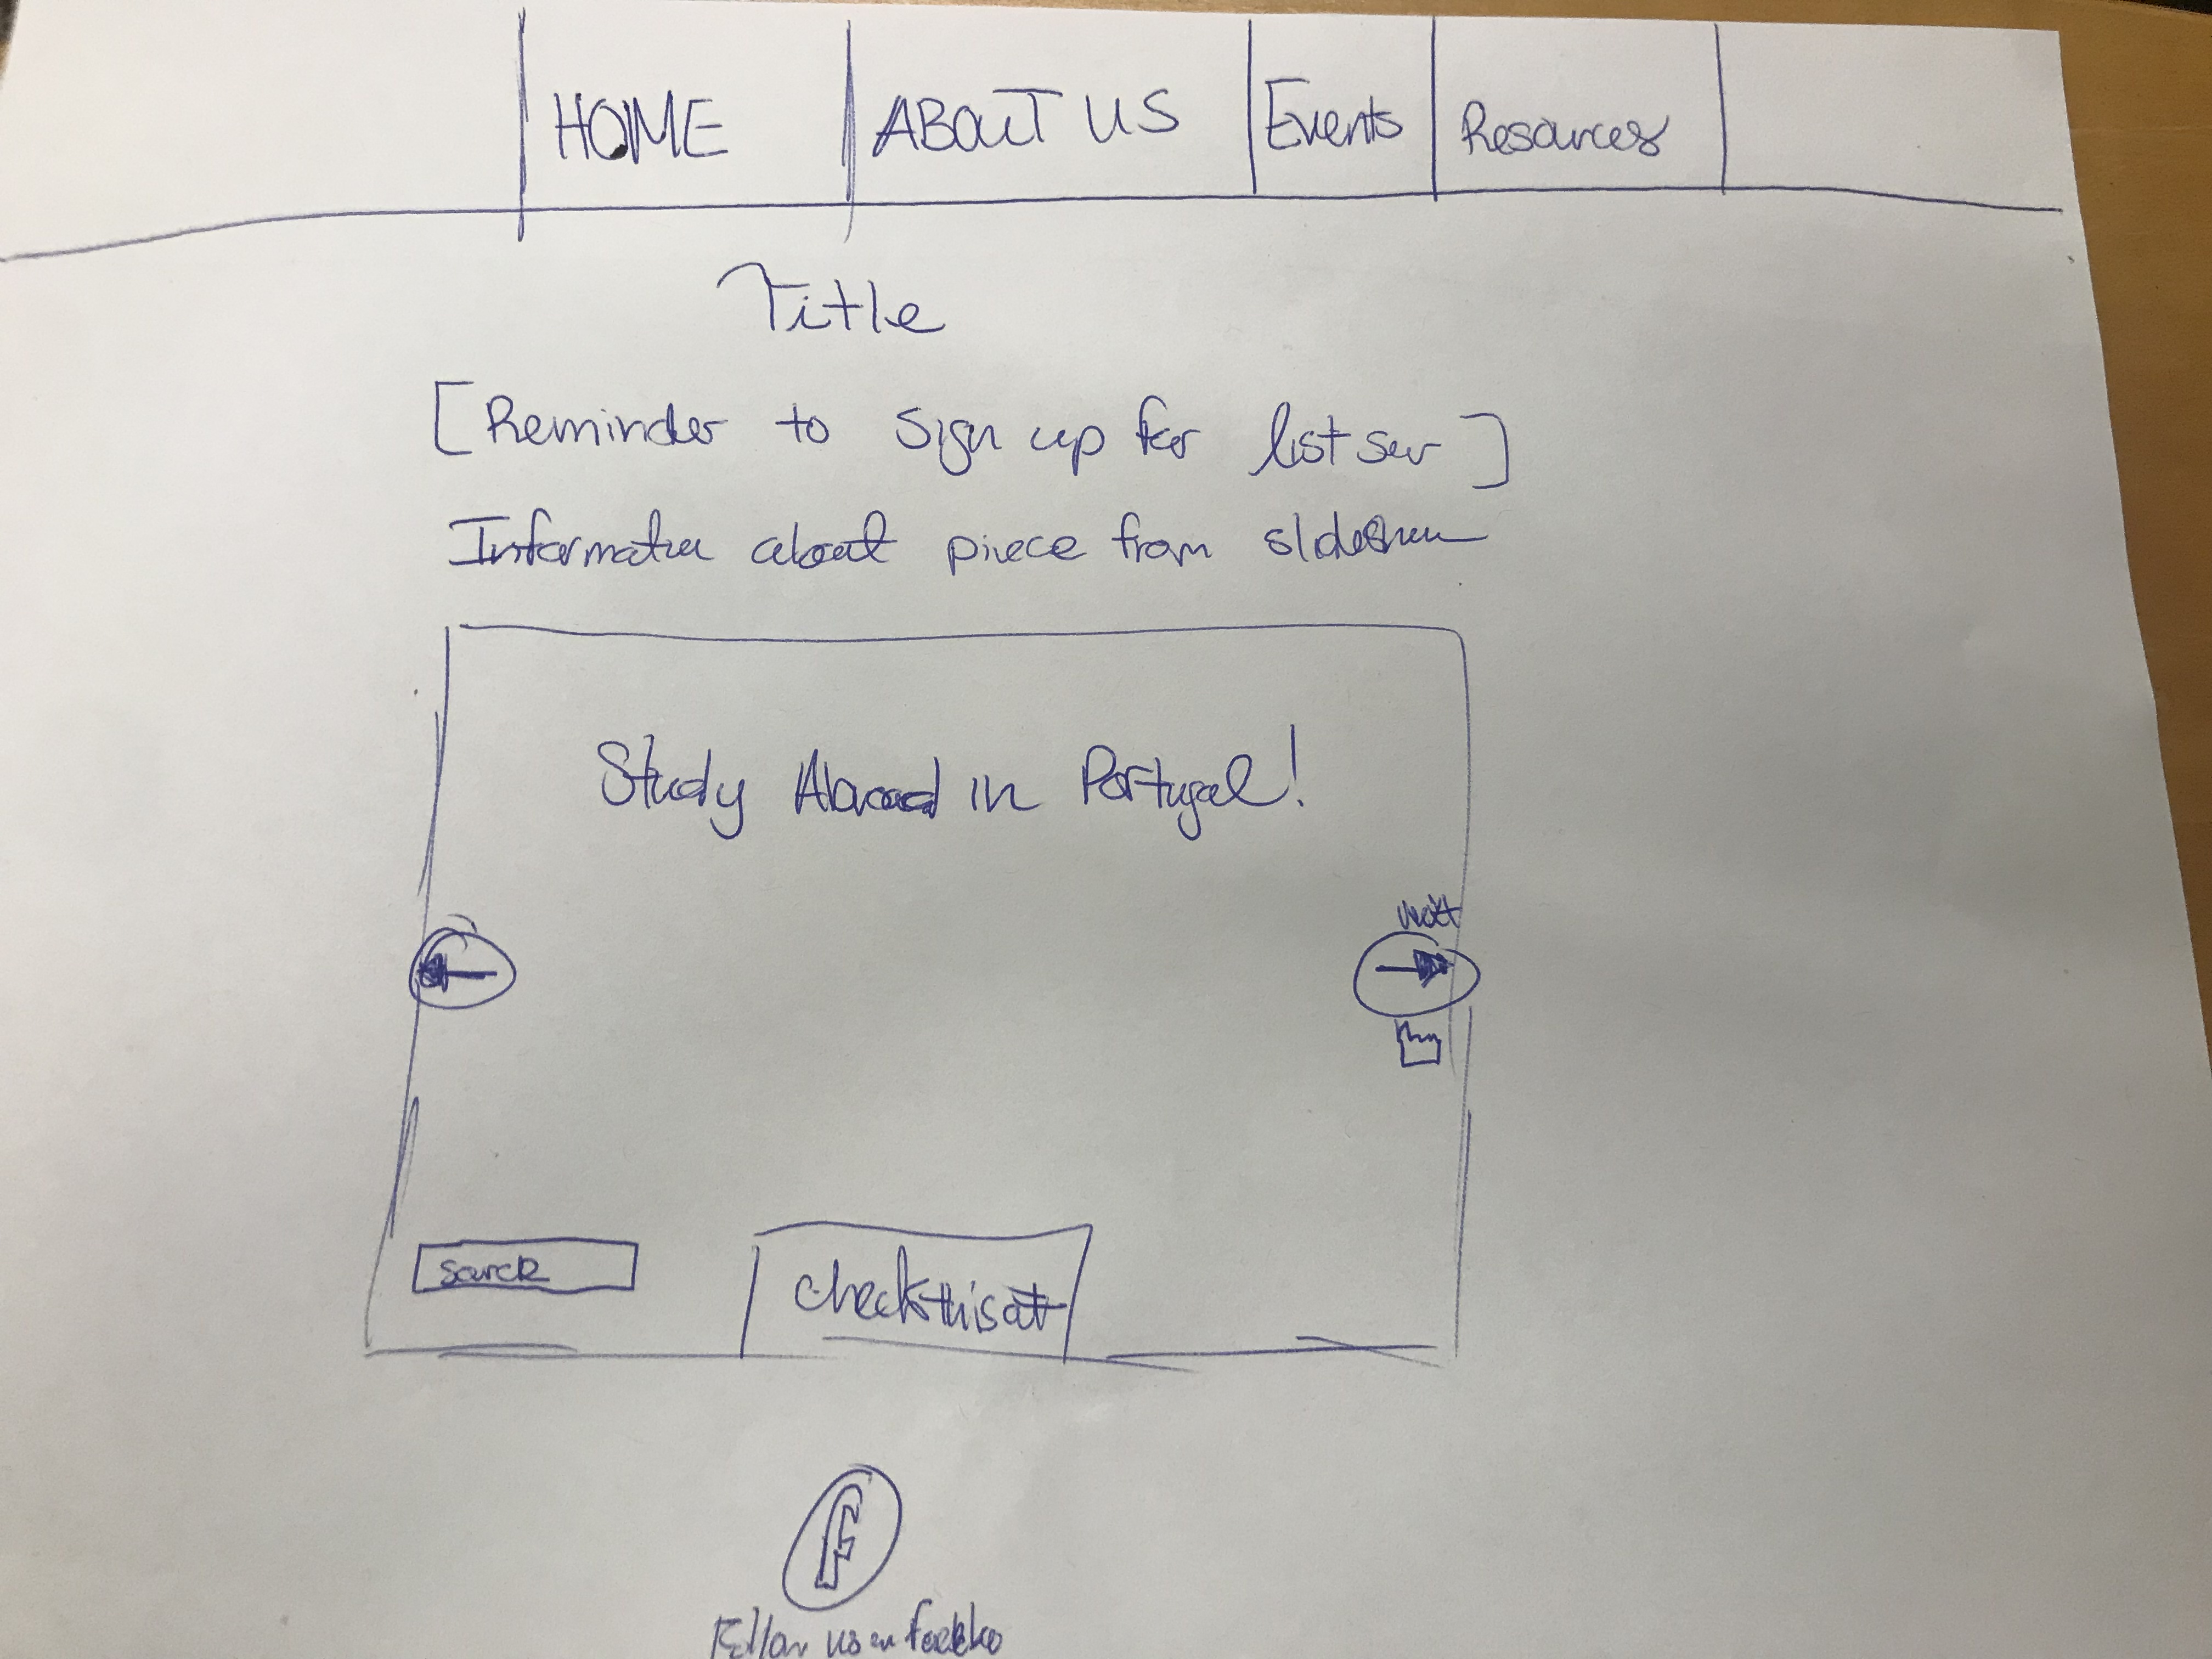 HOME ABOUT US Events Resources
Title
[Reminder to Sign up for listserv]
Information about piece from slideshow
Study Abroad in Portugal!
source
check this out
F
Follow us on facebook